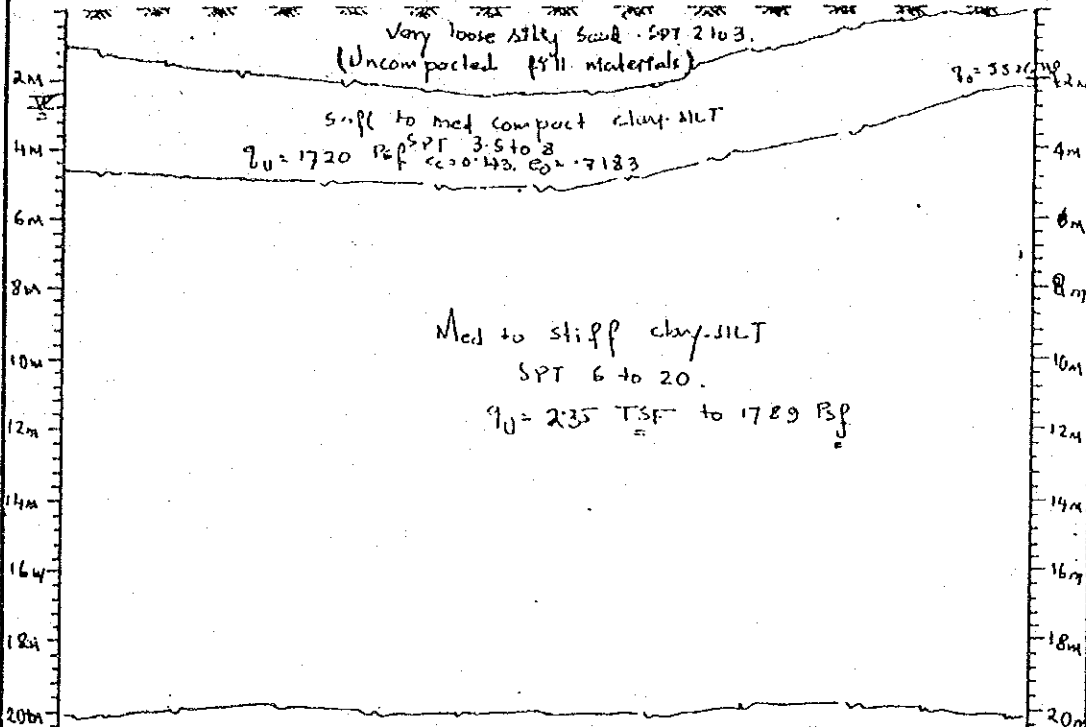 Very loose silty sand. SPT 2 to 3.
(Uncompacted fill materials)
soft to med compact clay-SILT
SPT 3.5 to 8
qu = 1720 Psf cc=0.43, eo= .7183
Med to stiff clay-SILT
SPT 6 to 20.
qu = 2.35 TSF to 1789 Psf
2M
4M
6M
8M
10M
12M
14M
16M
18M
20M
2M
4M
6M
8M
10M
12M
14M
16M
18M
20M